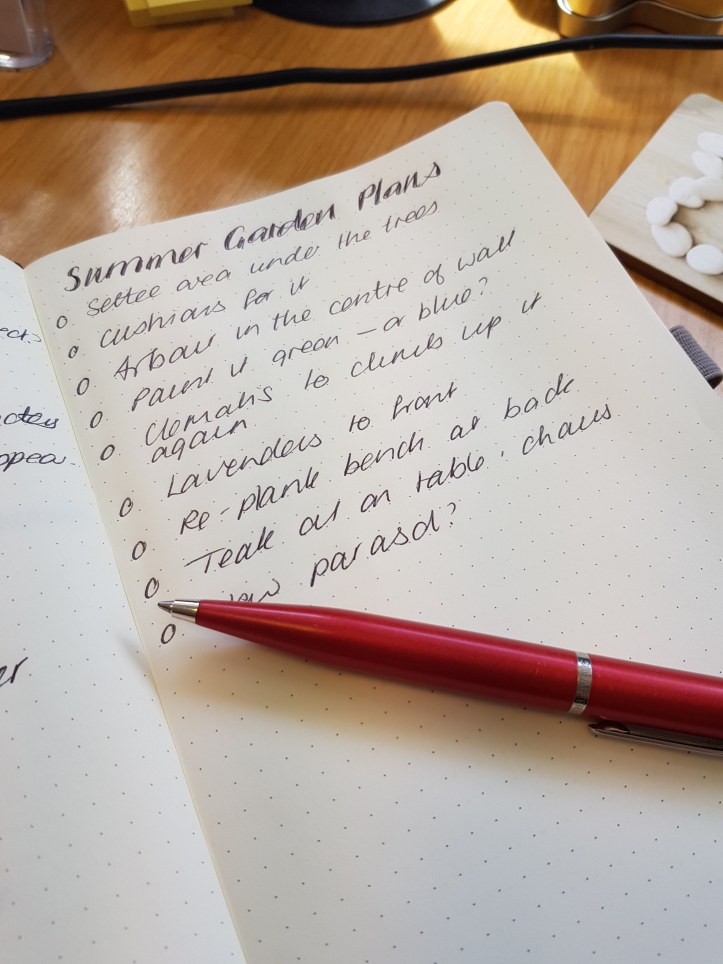 Summer Garden Plans
o settee area under the trees
o cushions for it
o Arbour in the centre of wall
o Paint it green – or blue?
o Clematis to climb up it
again
o Lavenders to front
o Re-plank bench at back
o Teak oil on table, chairs
o new parasol?